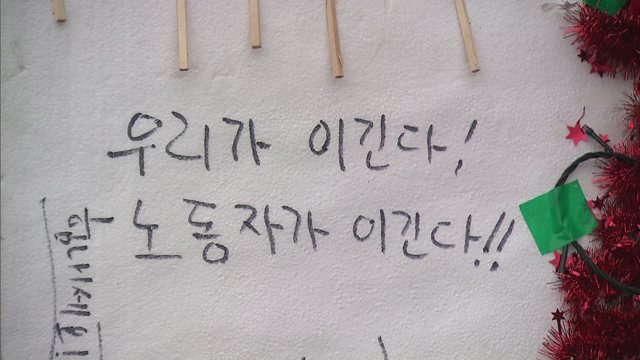 우리가 이긴다!
노동자가 이긴다!!